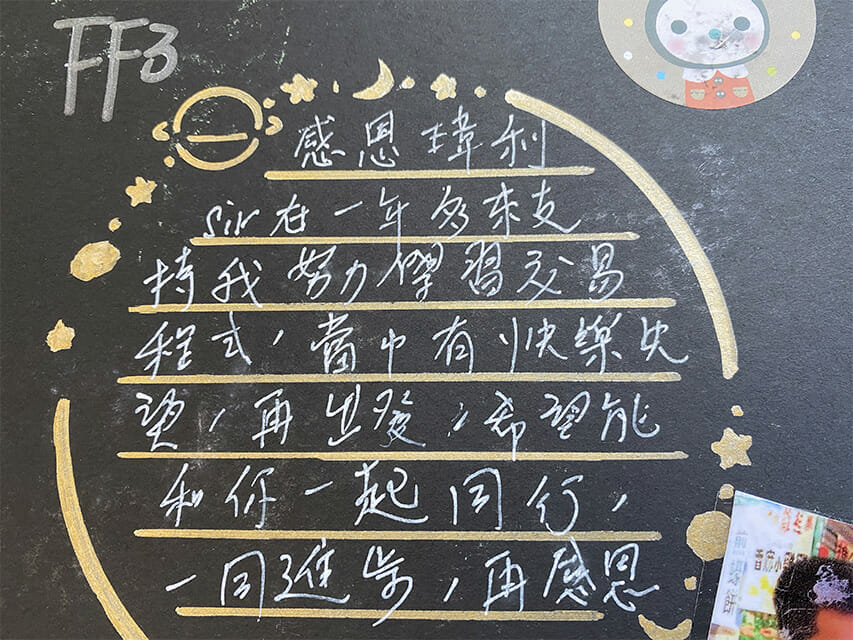 FF3
感恩瑋利
Sir在一年多來支
持我努力學習交易
程式，當中有快樂失
望，再出發，希望能
和你一起同行，
一同進步，再感恩